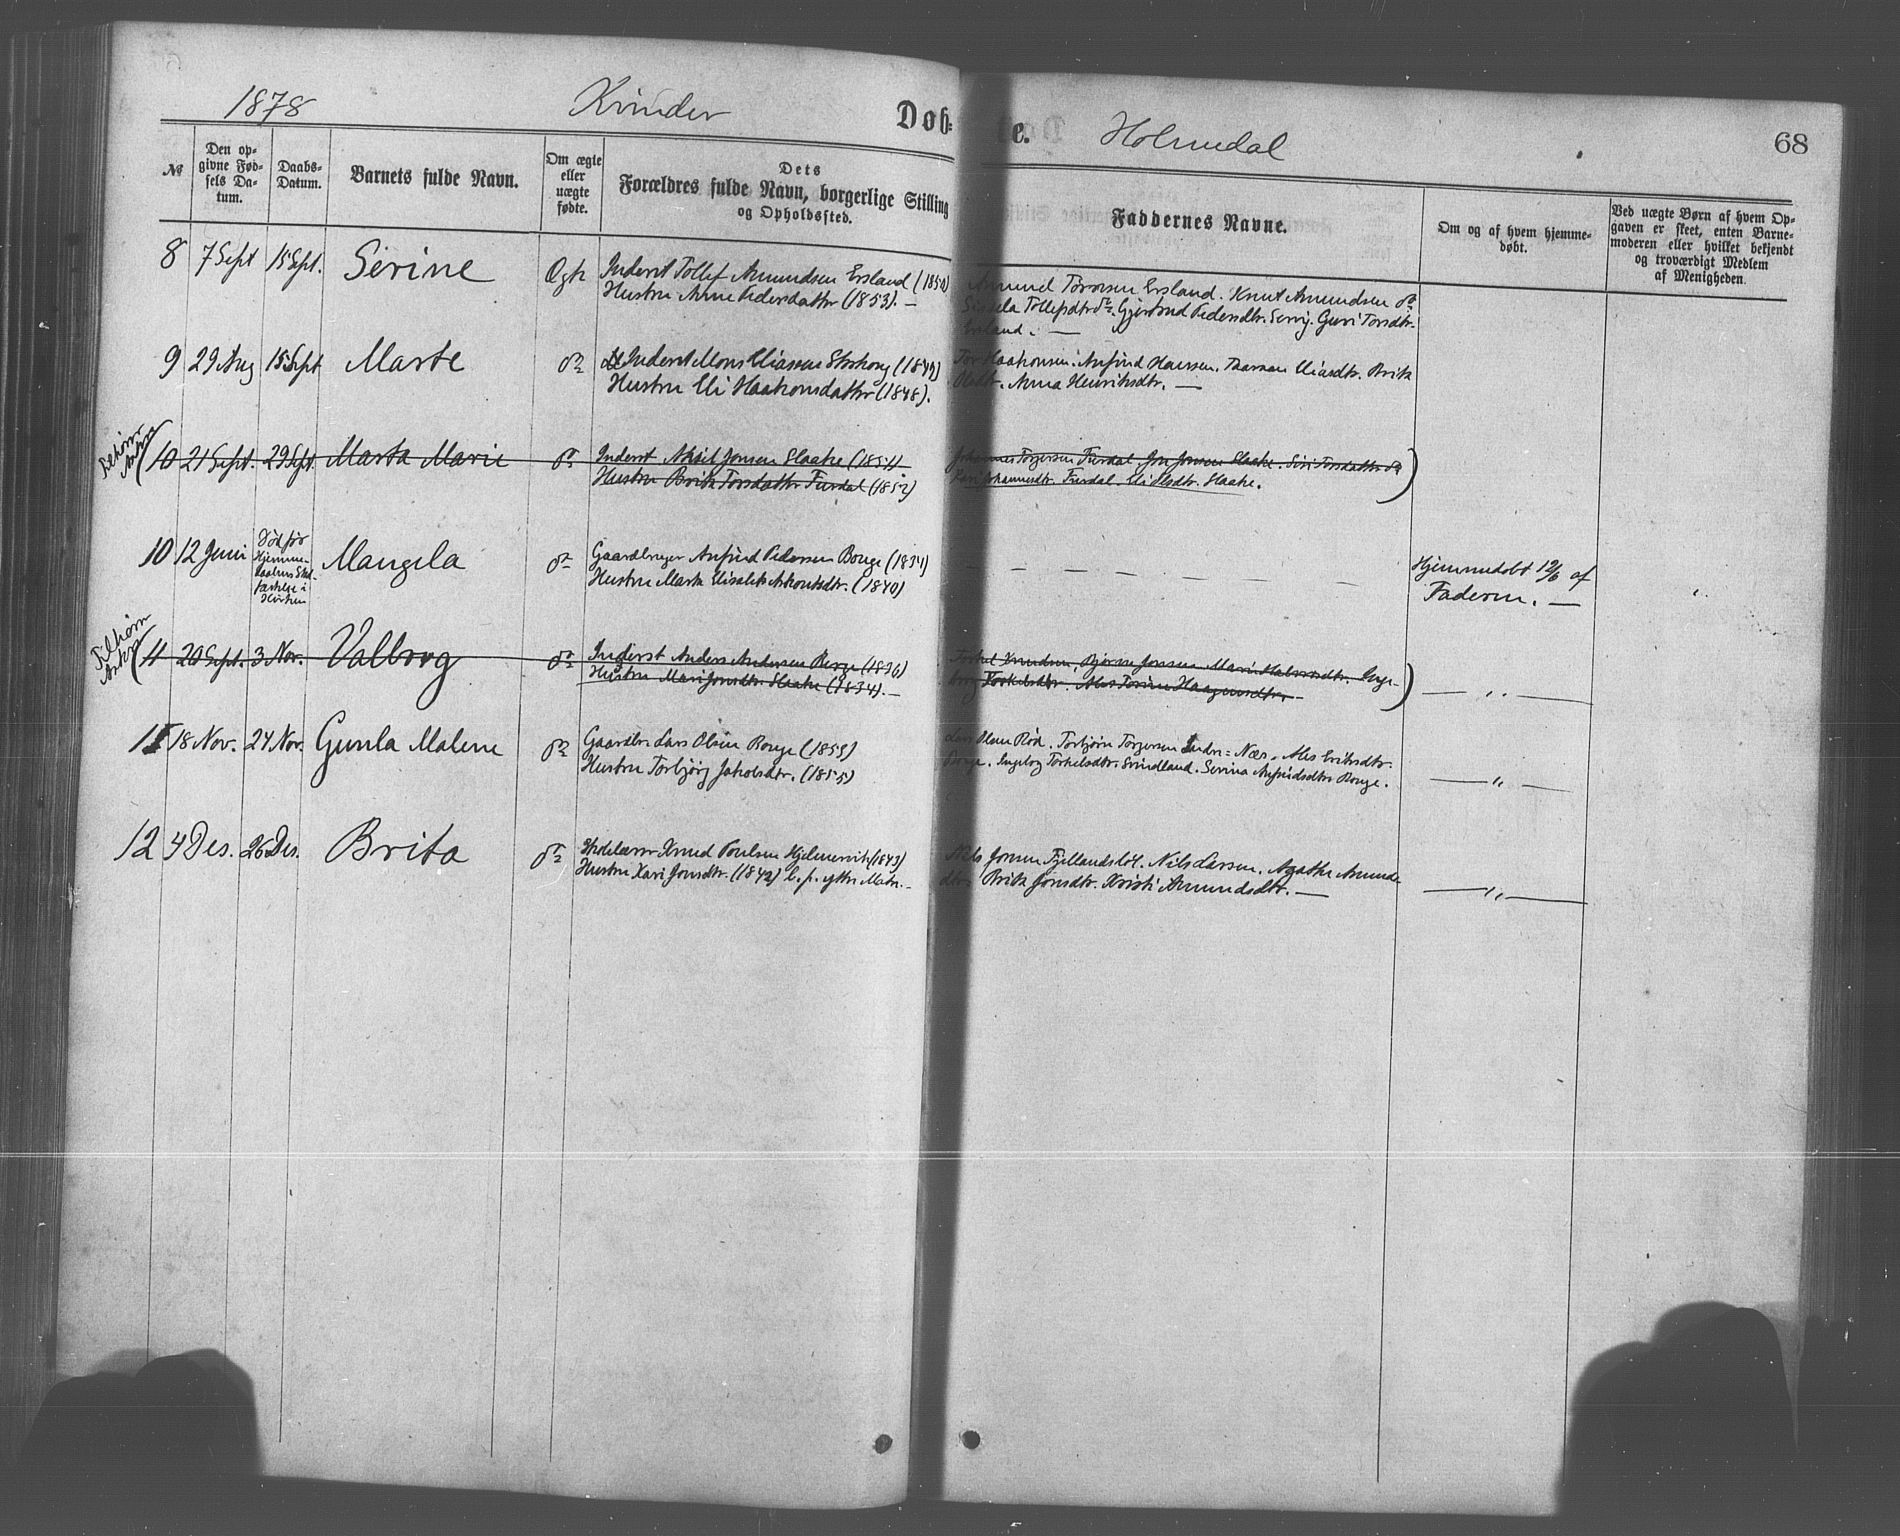 1878 Kvinder Døb= te. Holmedal 68
№ Den opgivne Fødsels Datum. Daabs-Datum. Barnets fulde Navn. Om ægte eller uægte fødte. Dets Forældres fulde Navn, borgerlige Stilling og Opholdssted. Faddernes Navne. Om og af hvem hjemmedøbt. Ved uægte Børn af hvem Opgaven er skeet, enten Barnemoderen eller hvilket bekjendt og troværdigt Medlem af Menigheden.
8 7 Sept 15 Sept. Serine Ægte Inderst Tollef Amundsen Ersland (1850)
Hustru Anne Pedersdatter (1853). —
Amund Ersland. Knut Amundsen do
Tollefsdtr do. Gjertrud Pedersdtr. Guri Torsdtr.
Ersland. —
9 29 Aug 15 Sept Marte do Inderst Mons Eliassen (1849)
Hustru Eli Haakonsdatter (1848).
Tor Haakonsen. Anfind Hansen. Eliasdtr. Brita
Anna Henriksdtr. —
Tilhører Askv
10 21 Sept. 29 Sept. Marta Marie do Inderst Aksel Jonsen Slaake (1851)
Hustru Brita Torsdatter Furdal (1852)
Johannes Torgersen Furdal. Jon Jonsen Slaake. Siri Torsdatter do
Kari Johannesdtr. Furdal. Eli Olsdtr. Slaake.
10 12 Juni Død før Hjemmedaabens Stadfæstelse i Kirken Mangela do Gaardbruger Anfind Pedersen Bonge (1834)
Hustru Marta Elisabet (1840)
— — — — — Hjemmedøbt 12/6 af
Faderen. —
Tilhører Askv
11 20 Sept. 3 Nov. Valborg do Inderst Anders Andersen Berge (1836)
Hustru Mari Jonsdtr. Slaake (1834). —
Torkel Knudsen, Bjørne Jonsen Mari Inge-
borg Torkelsdtr. — „ —
11 18 Nov. 24 Nov. Gunla Malene do Gaardbr. Lars Olsen Bonge (1853)
Hustru Torbjørg Jakobsdtr. (1855)
Olsen Rød. Torbjørn Torgersen Indre=Næs. Eriksdtr.
Bonge. Ingeborg Torkelsdtr. Svindland. Serina Anfindsdtr Bonge. — „ —
12 4 Des. 26 Des. Brita do Skolelærer Knud Poulsen Hjelmervik (1843)
Hustru Kari Jonsdtr. (1842) b. p. ytre
Nils Jonsen Nils Larsen. Agathe Amunds-
dtr Brita Jonsdtr. Kristi Amundsdtr. — — „ —